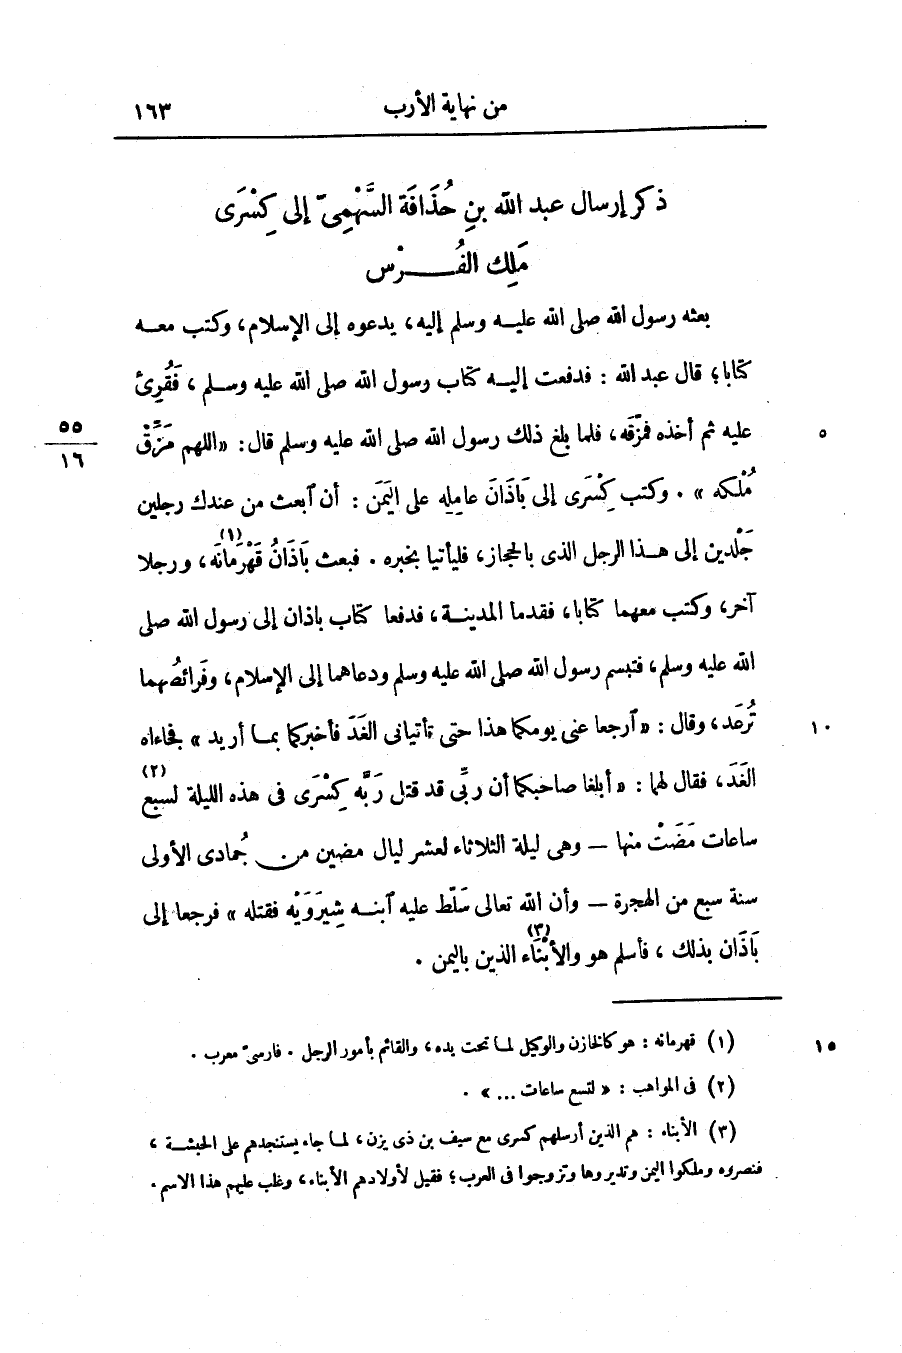 من نهاية الأرب ١٦٣
ذكر إرسال عبد الله بنِ حُذَافَة السَّهْمِىّ إلى كِسْرَى
مَلِك الفُـــرْس
بعثه رسول الله صلى الله عليـه وسلم إليه، يدعوه إلى الإسلام، وكتب معـه
كتابا؛ قال عبد الله : فدفعت إليـه كتاب رسول الله صلى الله عليه وسـلم ، فَقُرِئَ
عليه ثم أخذه فمزّقَه، فلما بلغ ذلك رسول الله صلى الله عليه وسلم قال: «اللهم مَزِّقْ ٥
٥٥
١٦
مُلْكه» . وكتب كِسْرَى إلى بَاذَانَ عامِلِه على اليَمَنَ : أن ٱبعث من عندك رجلين
جَلْدين إلى هـذا الرجل الذى بالحجاز، فليأتيا بخبره . فبعث بَاذَانُ قَهْرَمانَه(١)، ورجلا
آخر، وكتب معهما كتابا، فقدما المدينـة، فدفعا كتاب باذان إلى رسول الله صلى
الله عليه وسلم، فتبسم رسول الله صلى الله عليه وسلم ودعاهما إلى الإسلام، وفَرائصُهما
تُرعَد، وقال : «ٱرجعا عنى يومكما هذا حتى تأتيانى الغَدَ فأخبركما بمـا أريد» فجاءاه ١٠
الغَدَ، فقال لهما : «أبلغا صاحبكما أن ربِّى قد قتل رَبَّه كِسْرَى فى هذه الليلة لسبع(٢)
ساعات مَضَتْ منها – وهى ليلة الثلاثاء لعشر ليال مضين من جُمادى الأولى
سنة سبع من الهجرة – وأن الله تعالى سَلّط عليه ٱبنـه شِيرَوَيْه فقتله» فرجعا إلى
بَاذَان بذلك ، فأسلم هو والأَبْنَاء(٣) الذين باليمن .
(١) قهرمانه : هو كالخازن والوكيل لمـا تحت يده، والقائم بأمور الرجل . فارسىّ معرب . ١٥
(٢) فى المواهب : «لتسع ساعات ...» .
(٣) الأبناء : هم الذين أرسلهم كسرى مع سيف بن ذى يزن، لمـا جاء يستنجدهم على الحبشـة ،
فنصروه وملكوا اليمن وتديروها وتزوجوا فى العرب؛ فقيل لأولادهم الأبناء، وغلب عليهم هذا الاسم .